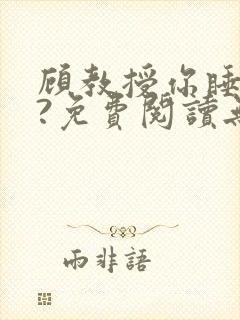 顧教授你睡
?免費閱讀
雨非語